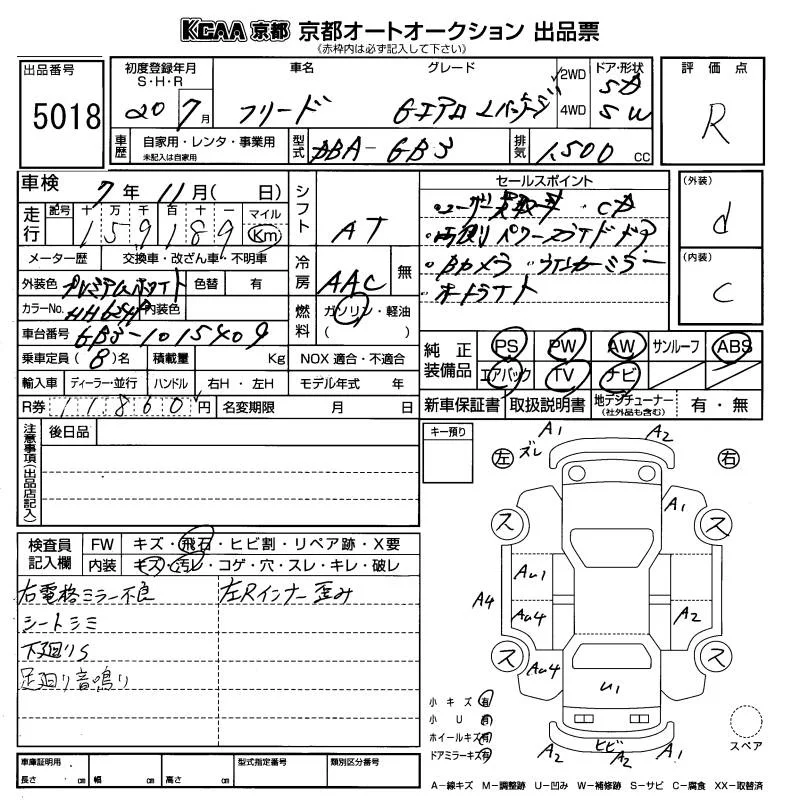 KCAA 京都 京都オートオークション 出品票
(赤枠内は必ず記入して下さい)
出品番号
5018
初度登録年月 車名 グレード ドア・形状
S・H・R
20 7月 フリード Gエアロ Lパッケージ 2WD 4WD 5D SW
評価点
R
車歴 自家用・レンタ・事業用
未記入は自家用
型式 DBA-GB3 排気 1,500 cc
車検 7年 11月(日)
走行 記号 十 万 千 百 十 一 マイル
159189 Km
メーター歴 交換車・改ざん車・不明車
外装色 プレミアムホワイト 色替 有
カラーNo. NH624P 内装色
車台番号 GB3-1015409
乗車定員 (8)名 積載量 Kg
輸入車 ディーラー・並行 ハンドル 右H・左H
R券 11860円 名変期限 月 日
シフト AT
冷房 AAC 無
燃料 ガソリン・軽油
( )
NOX 適合・不適合
モデル年式 年
セールスポイント
・ユーザー買取車 ・CD
・両側パワースライドドア
・Bカメラ ウインカーミラー
・オートライト
(外装)
d
(内装)
C
純正装備品 PS PW AW サンルーフ ABS
エアバック TV ナビ
新車保証書 取扱説明書 地デジチューナー 有・無
(社外品も含む)
注意事項(出品店記入) 後日品
キー預り
検査員記入欄 FW キズ・飛石・ヒビ割・リペア跡・X要
内装 キズ・汚レ・コゲ・穴・スレ・キレ・破レ
右電格ミラー不良 左Rインナー歪み
シートシミ
下廻りS
足廻り音鳴り
A1 A2
ズレ
左 右
A1
ス ス
Au1
A4 Au4 A2
ス Au4 ス
U1
小キズ 有
小U 有
ホイールキズ 有
ドアミラーキズ 有
A2 ヒビ A2 A1
スペア
A-線キズ M-調整跡 U-凹み W-補修跡 S-サビ C-腐食 XX-取替済
車庫証明用 型式指定番号 類別区分番号
長さ cm 幅 cm 高さ cm